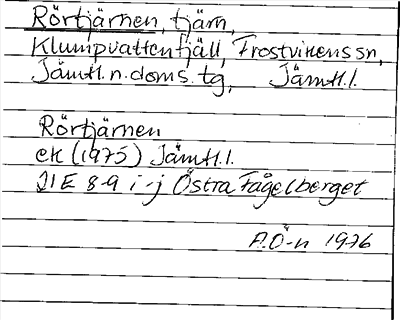 Rörtjärnen, tjärn,
Klumpvattenfjäll, Frostvikens sn,
Jämtl. n. doms. tg, Jämtl. l.
Rörtjärnen
ek (1975) Jämtl. l.
21E 8-9 i-j Östra Fågelberget
A.Ö-n 1976